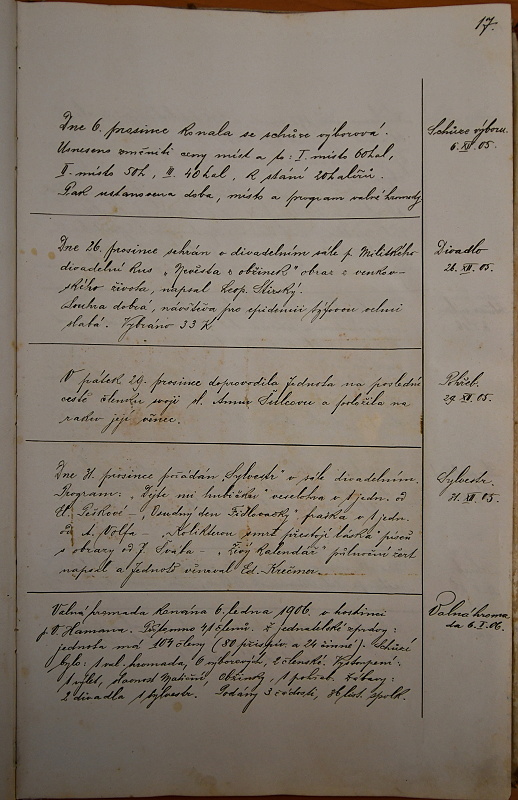 17.
Dne 6. prosince konala se schůze výborová.
Usneseno změniti ceny míst a to: I. místo 60 hal,
II. místo 50h, III. 40 hal, k stání 20 haléřů.
Pak ustanovena doba, místo a program valné hromady
Schůze výboru.
6. XII. 05.
Dne 26. prosince sehrán v divadelním sále p. Militkého
divadelní kus „Nevěsta z obžinek" obraz z venkov-
ského života, napsal Leop. Stirský.
Souhra dobrá, návštěva pro epidemii tyfovou velmi
slabá. Vybráno 33 K
Divadlo
26. XII. 05.
V pátek 29. prosince doprovodila Jednota na poslední
cestě členku svoji sl. Annu Šulcovu a položila na
rakev její věnec.
Pohřeb.
29. XII. 05.
Dne 31. prosince pořádán „Sylvestr" v sále divadelním.
Program: „Dejte mi hubičku" veselohra v 1 jedn. od
El. Peškové – „Osudný den Fidlovačky" fraška v 1 jedn.
od A. Volfa – „Kolikterou smrt přestojí láska" píseň
s obrazy od J. Svába – „Živý kalendář" půlnoční žert
napsal a Jednotě věnoval Ed. Krečmer.
Sylvestr.
31. XII. 05.
Valná hromada konána 6. ledna 1906 v hostinci
p. V. Hamana. Přítomno 41 členů. Z jednatelské zprávy:
jednota má 104 členy (80 přispív. a 24 činné). Schůzí
bylo: 1 val. hromada, 6 výborových, 2 členské. Vystoupení:
1 výlet, slavnost Matiční, Obžinky, 1 pohřeb. Zábavy:
2 divadla 1 Sylvestr. Podány 3 žádosti, 36 list. spolk.
Valná hroma
da 6. I. 06.